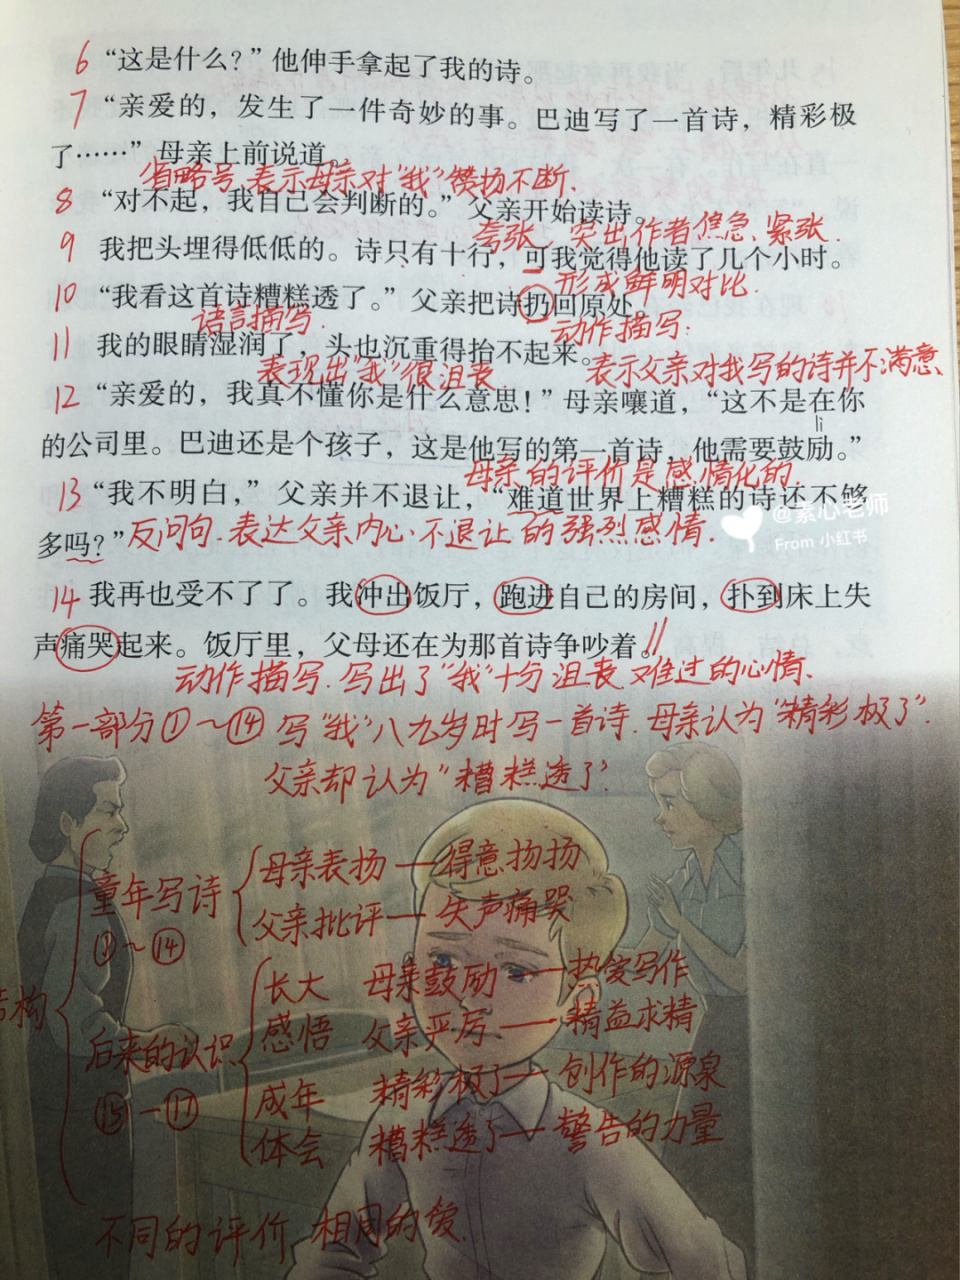 6 “这是什么？”他伸手拿起了我的诗。
7 “亲爱的，发生了一件奇妙的事。巴迪写了一首诗，精彩极
了……”母亲上前说道。
省略号，表示母亲对“我”赞扬不断、
8 “对不起，我自己会判断的。”父亲开始读诗。
夸张、突出作者焦急、紧张.
9 我把头埋得低低的。诗只有十行，可我觉得他读了几个小时。
形成鲜明对比.
10 “我看这首诗糟糕透了。”父亲把诗扔回原处。
语言描写.
动作描写:
11 我的眼睛湿润了，头也沉重得抬不起来。
表现出“我”很沮丧
表示父亲对我写的诗并不满意、
12 “亲爱的，我真不懂你是什么意思！”母亲嚷道，“这不是在你
lì
的公司里。巴迪还是个孩子，这是他写的第一首诗，他需要鼓励。”
母亲的评价是感情化的.
13 “我不明白，”父亲并不退让，“难道世界上糟糕的诗还不够
@素心老师
From 小红书
多吗？”反问句.表达父亲内心不退让的强烈感情.
14 我再也受不了了。我冲出饭厅，跑进自己的房间，扑到床上失
声痛哭起来。饭厅里，父母还在为那首诗争吵着。//
动作描写.写出了“我”十分沮丧、难过的心情、
第一部分①～⑭ 写“我”八九岁时写一首诗.母亲认为“精彩极了”.
父亲却认为“糟糕透了”
童年写诗 母亲表扬—得意扬扬
①～⑭ 父亲批评—失声痛哭
构
后来的认识
⑮—⑰
长大 母亲鼓励—热爱写作
感悟 父亲严厉—精益求精
成年 精彩极了—创作的源泉
体会 糟糕透了—警告的力量
不同的评价.相同的爱.